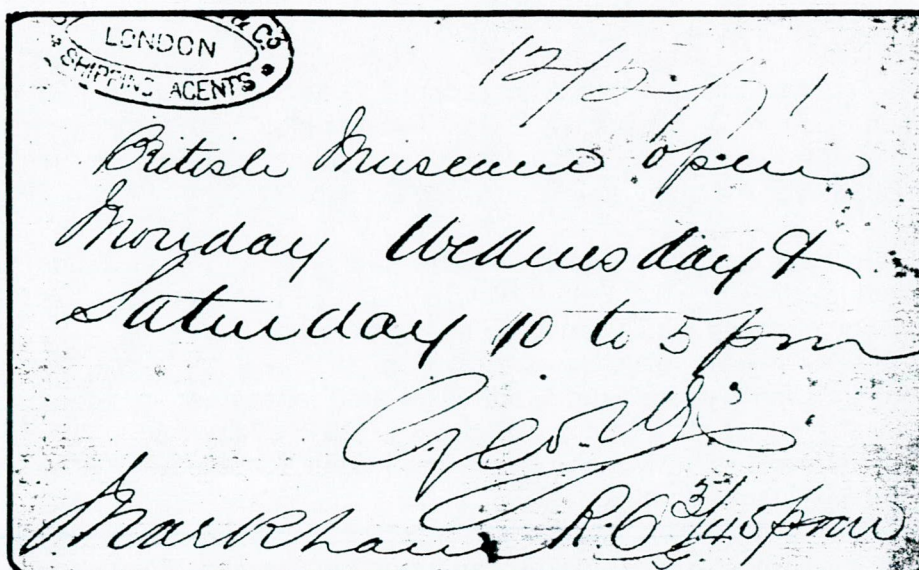 & Co
LONDON
SHIPPING AGENTS
12/5/71
British Museum open
Monday Wednesday &
Saturday 10 to 5 pm
Markham R. 6